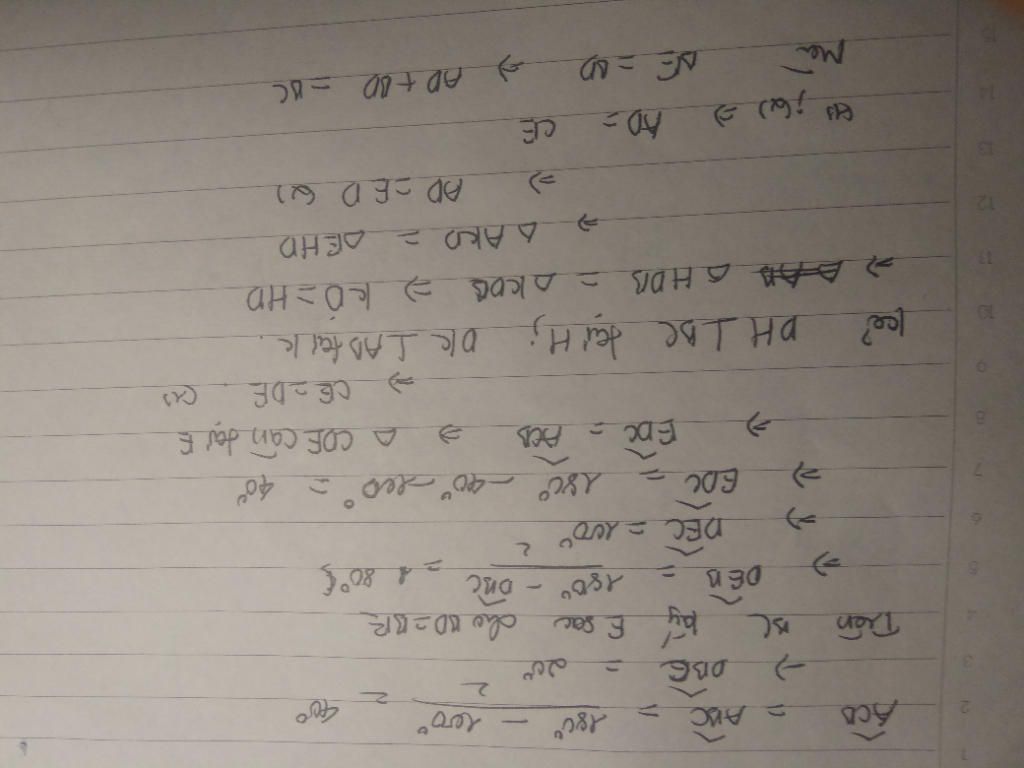 ACB = ABC = (180° - 100°)/2 = 40°
→ DBC = 20°
Trên BC lấy E sao cho BD=BE
⇒ DEB = (180° - DBC)/2 = 80°
⇒ DEC = 100°
⇒ EDC = 180° - 40° - 100° = 40°
⇒ EDC = ACB ⇒ Δ CDE cân tại E
⇒ CE=DE (1)
Kẻ DH ⊥ BC tại H; DK ⊥ AB tại K.
⇒ Δ HDB = Δ KDB ⇒ KD=HD
⇒ Δ AKD = Δ EHD
⇒ AD=ED (2)
(1);(2) ⇒ AD = CE
Mà BE=BD ⇒ AD+BD = BC